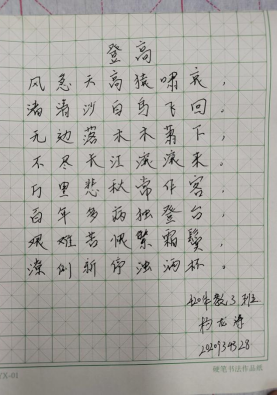 登高
风急天高猿啸哀，
渚清沙白鸟飞回。
无边落木木萧下，
不尽长江滚滚来。
万里悲秋常作客，
百年多病独登台。
艰难苦恨繁霜鬓，
潦倒新停浊酒杯。
3班
硬笔书法作品纸